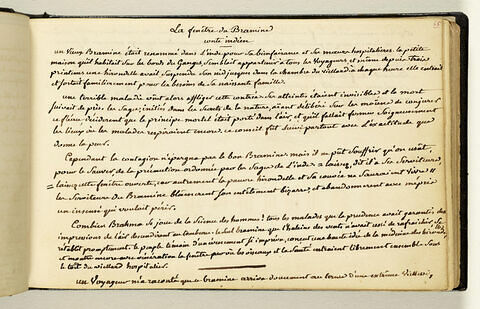 La fenêtre du Bramine
conte indien
25
un vieux Bramine était renommé dans l'inde pour sa bienfaisance et ses mœurs hospitalières. la petite
maison qu'il habitait sur les bords du Gange, semblait appartenir à tous les voyageurs et même depuis trois
printems une hirondelle avait suspendu son nid jusques dans la chambre du vieillard à chaque heure elle entrait
et sortait familièrement pour les besoins de sa naissante famille.
un terrible maladie vint alors affliger cette contrée. Ses atteintes étaient invisibles et la mort
suivait de près les Sages, initiés dans les Secrets de la nature, ayant délibéré sur les moïens de conjurer
ce fléau, décidèrent que le principe mortel était porté dans l'air, et qu'il fallait fermer soigneusement
les lieux où les malades respiraient encore. ce conseil fut suivi partout avec l'exactitude que
donne la peur.
Cependant la contagion n'épargna pas le bon Bramine mais il ne put souffrir qu'on usât,
pour le sauver de la précaution ordonnée par les Sages de l'inde = laissez, dit il à ses serviteurs,
= laissez cette fenêtre ouverte, car autrement la pauvre hirondelle et sa couvée ne sauraient vivre =
les serviteurs du Bramine blamèrent son entêtement bizarre, et abandonnèrent avec mépris
un insensé qui voulait périr.
Combien Brahma se joue de la Science des hommes! tous les malades que la prudence avait garantis des
impressions de l'air descendirent au tombeau: le seul bramine que l'haleine des vents n'avait cessé de rafraichir, se
rétablit promptement. le peuple témoin d'un évènement si imprévu, conçut une haute idée de la médecine des hirondelles
et montre encore avec vénération la fenêtre par où les oiseaux et la Santé entraient librement ensemble sous
le toit du vieillard hospitalier.
un Voyageur m'a raconté que ce bramine arriva doucement au terme d'une extrême vieillesse,